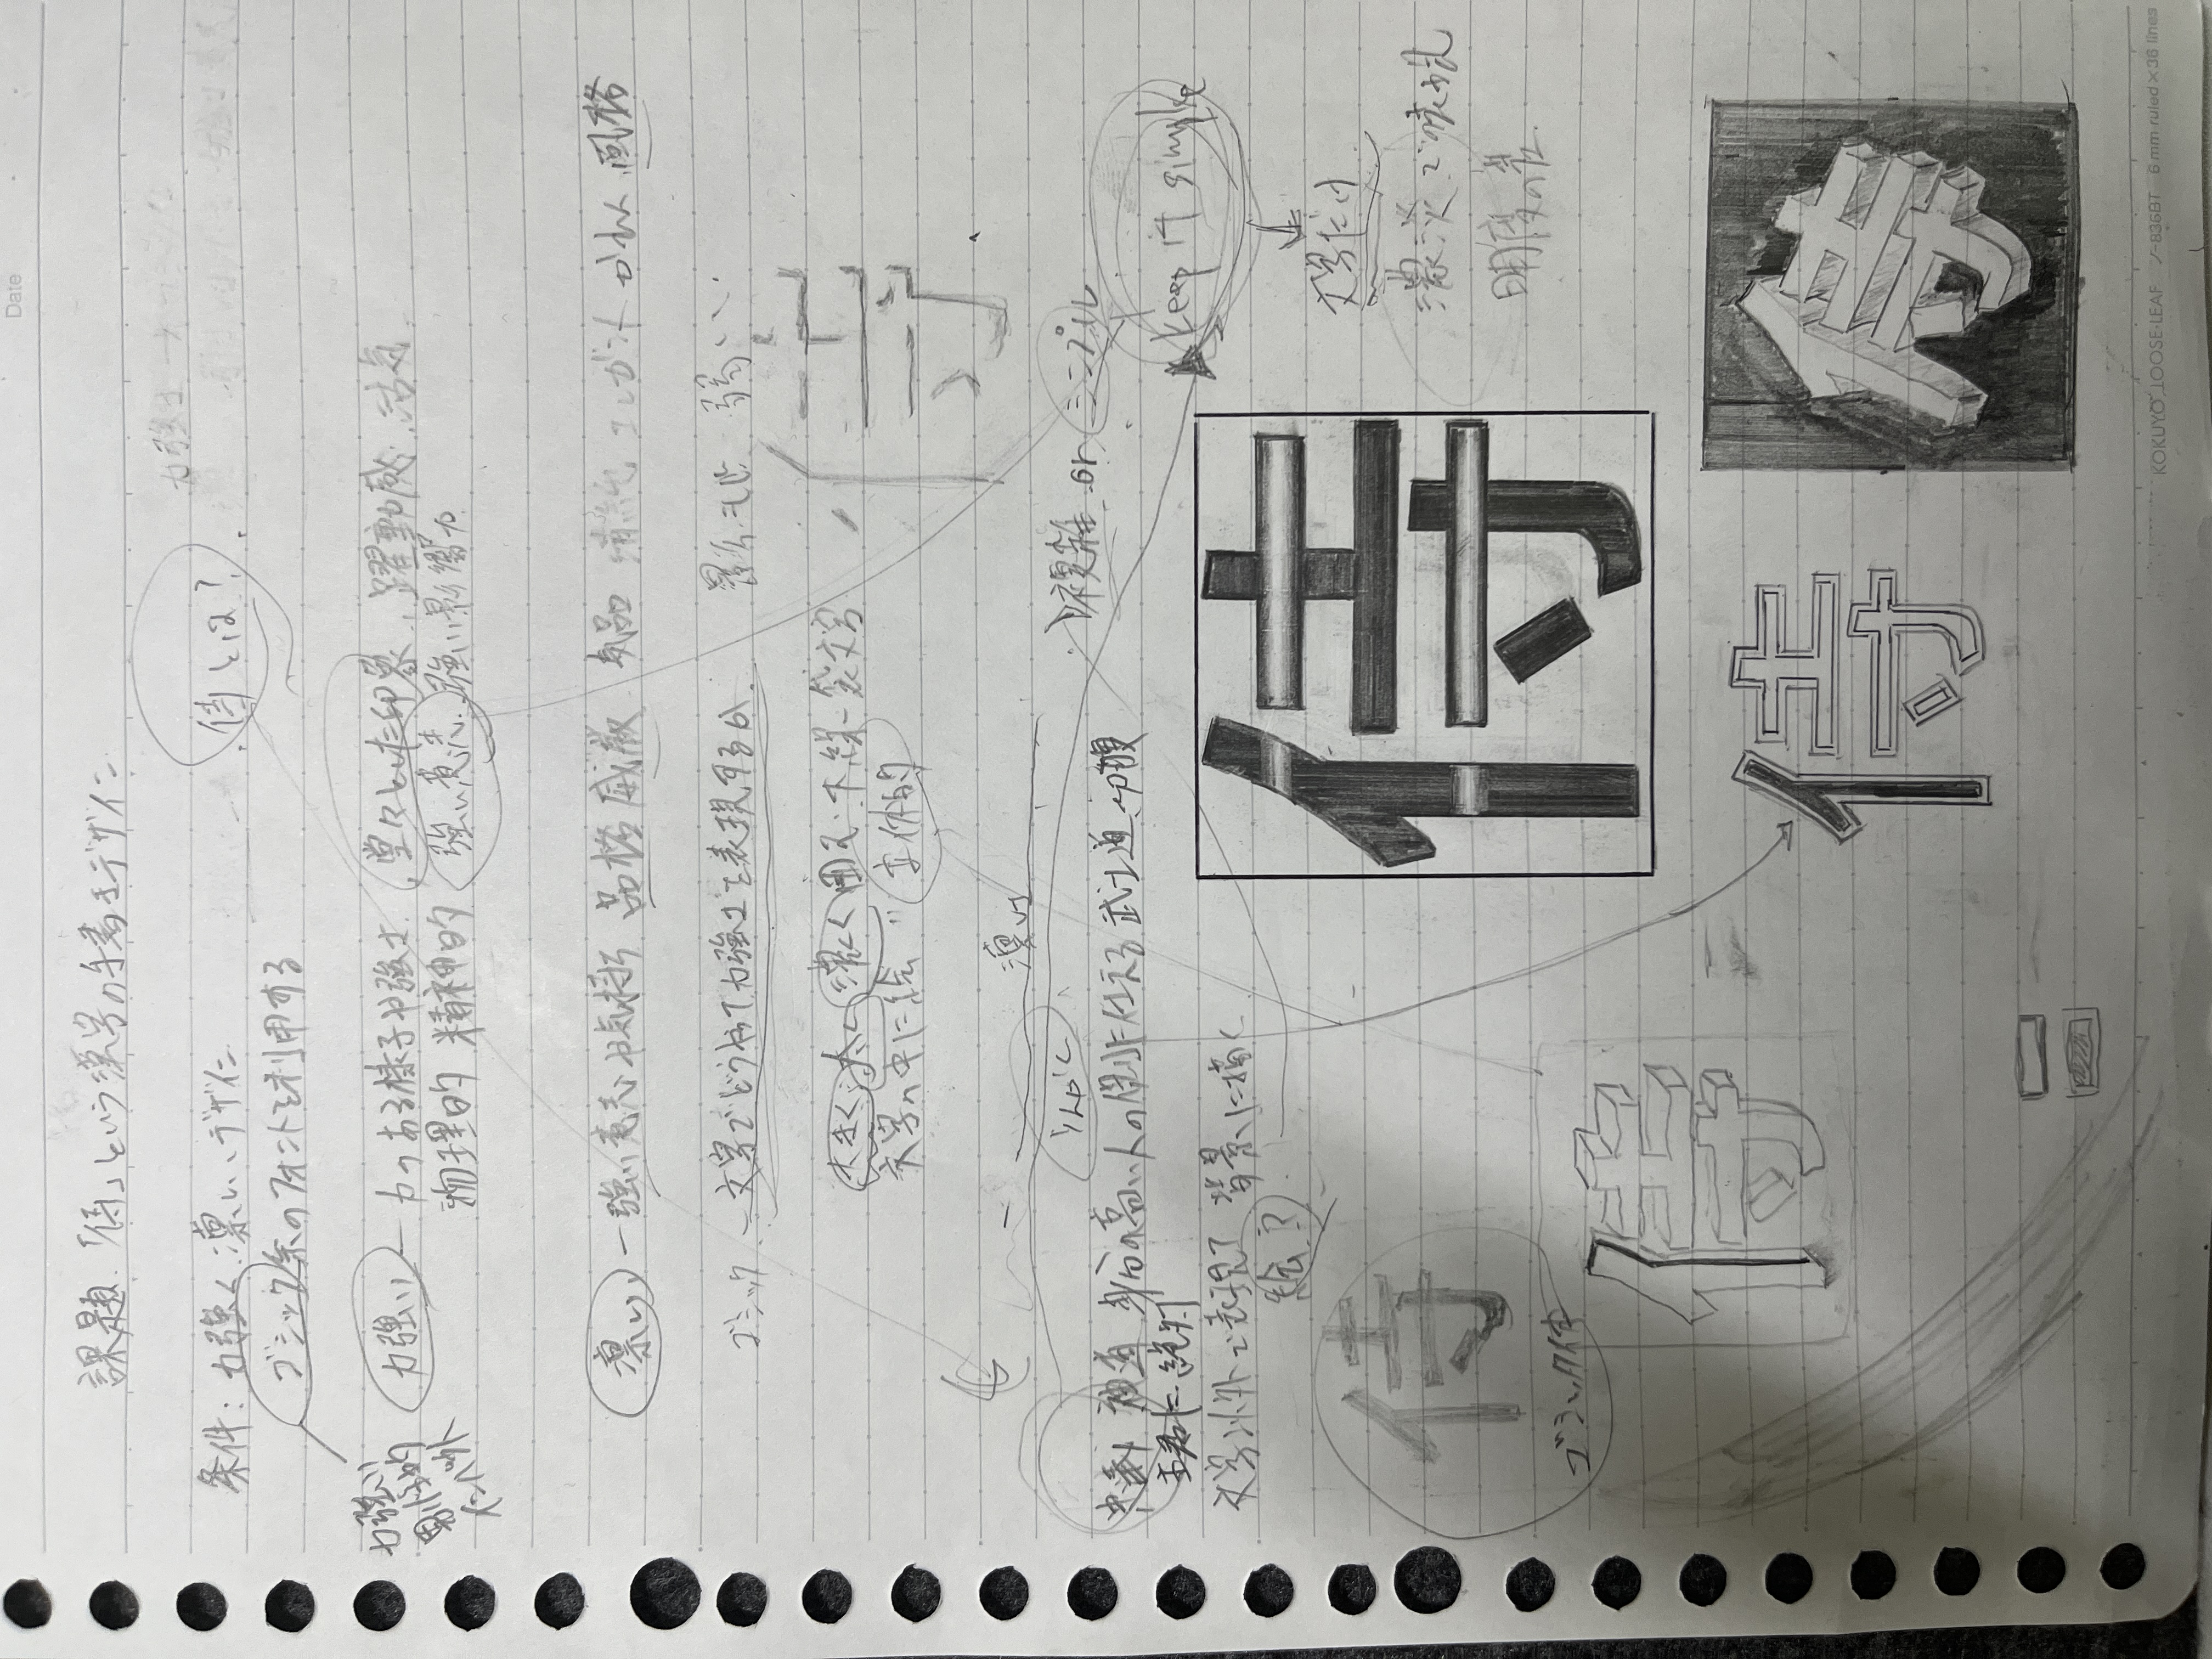 Date
課題.「侍」という漢字の手書きデザイン
条件: 力強く、凛しい、デザイン
侍とは?
力強さ
ゴシック系のフォントを利用する
力強い
男性的
インパクト
力強い ー 力のある様子や強さ 堂々とした印象、躍動感、活気
物理的 精神的 強い意志 強い影響力
凛しい ー 強い意志や気持ち 品格 威厳 気品 清純 エレガント かれん 風格
ゴシック ー 文字でどうやって力強さを表現するか.
弱い.
大きく 太く 濃く 囲む 下線 袋文字
文字の中に絵 〃 立体的
侍
凛しさ
りんかく
複雑 or シンプル
忠義 神道 身分の高い人の側に仕える 武士道 切腹
主君に絶対
keep it simple
文字以外で表現? 背景に描く
絵?
文字だけ
濃淡での表現
明度の差
侍
ゴシック体
侍
侍
侍
侍
KOKUYO LOOSE-LEAF ノ-836BT 6 mm ruled×36 lines